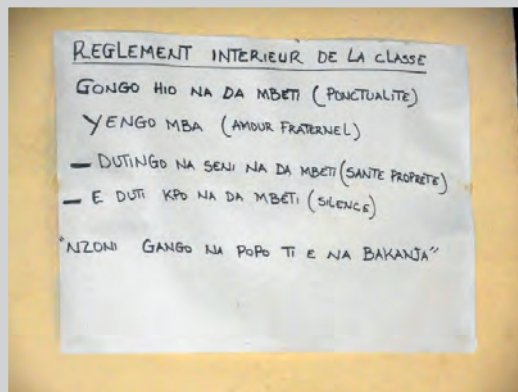 REGLEMENT INTERIEUR DE LA CLASSE
GONGO HIO NA DA MBETI (PONCTUALITE)
YENGO MBA (AMOUR FRATERNEL)
– DUTINGO NA SENI NA DA MBETI (SANTE PROPRETE)
– E DUTI KPO NA DA MBETI (SILENCE)
"NZONI GANGO NA POPO TI E NA BAKANJA"